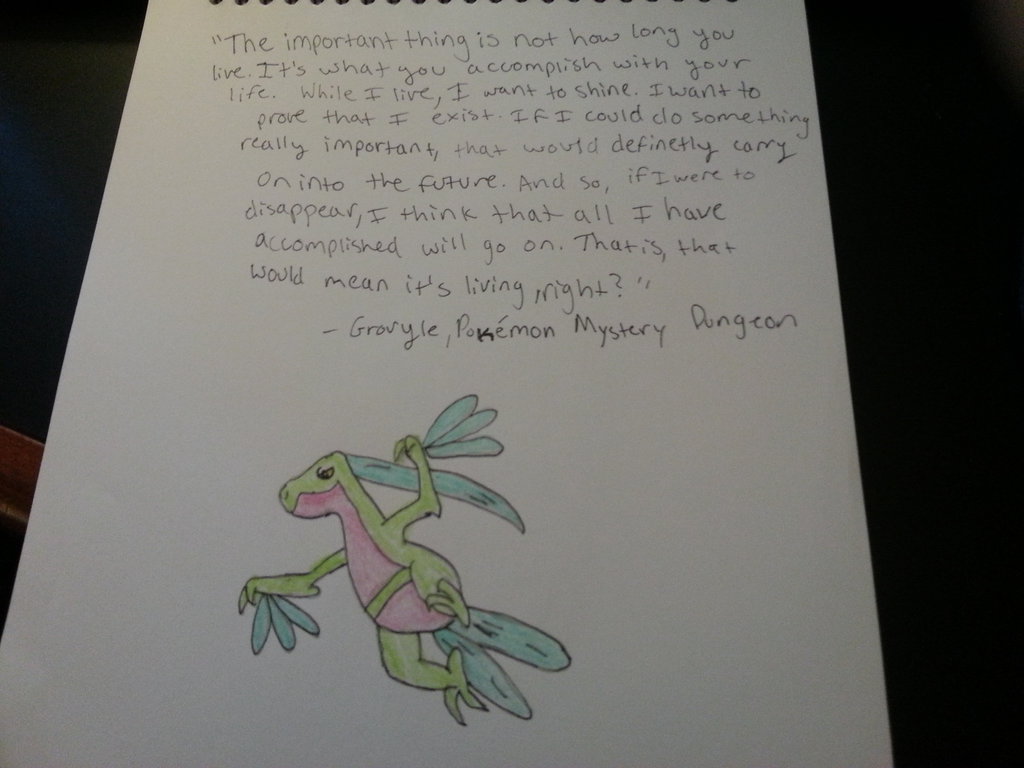 "The important thing is not how long you
live. It's what you accomplish with your
life. While I live, I want to shine. I want to
prove that I exist. If I could do something
really important, that would definetly carry
on into the future. And so, if I were to
disappear, I think that all I have
accomplished will go on. That is, that
would mean it's living, right?"
- Grovyle, Pokémon Mystery Dungeon